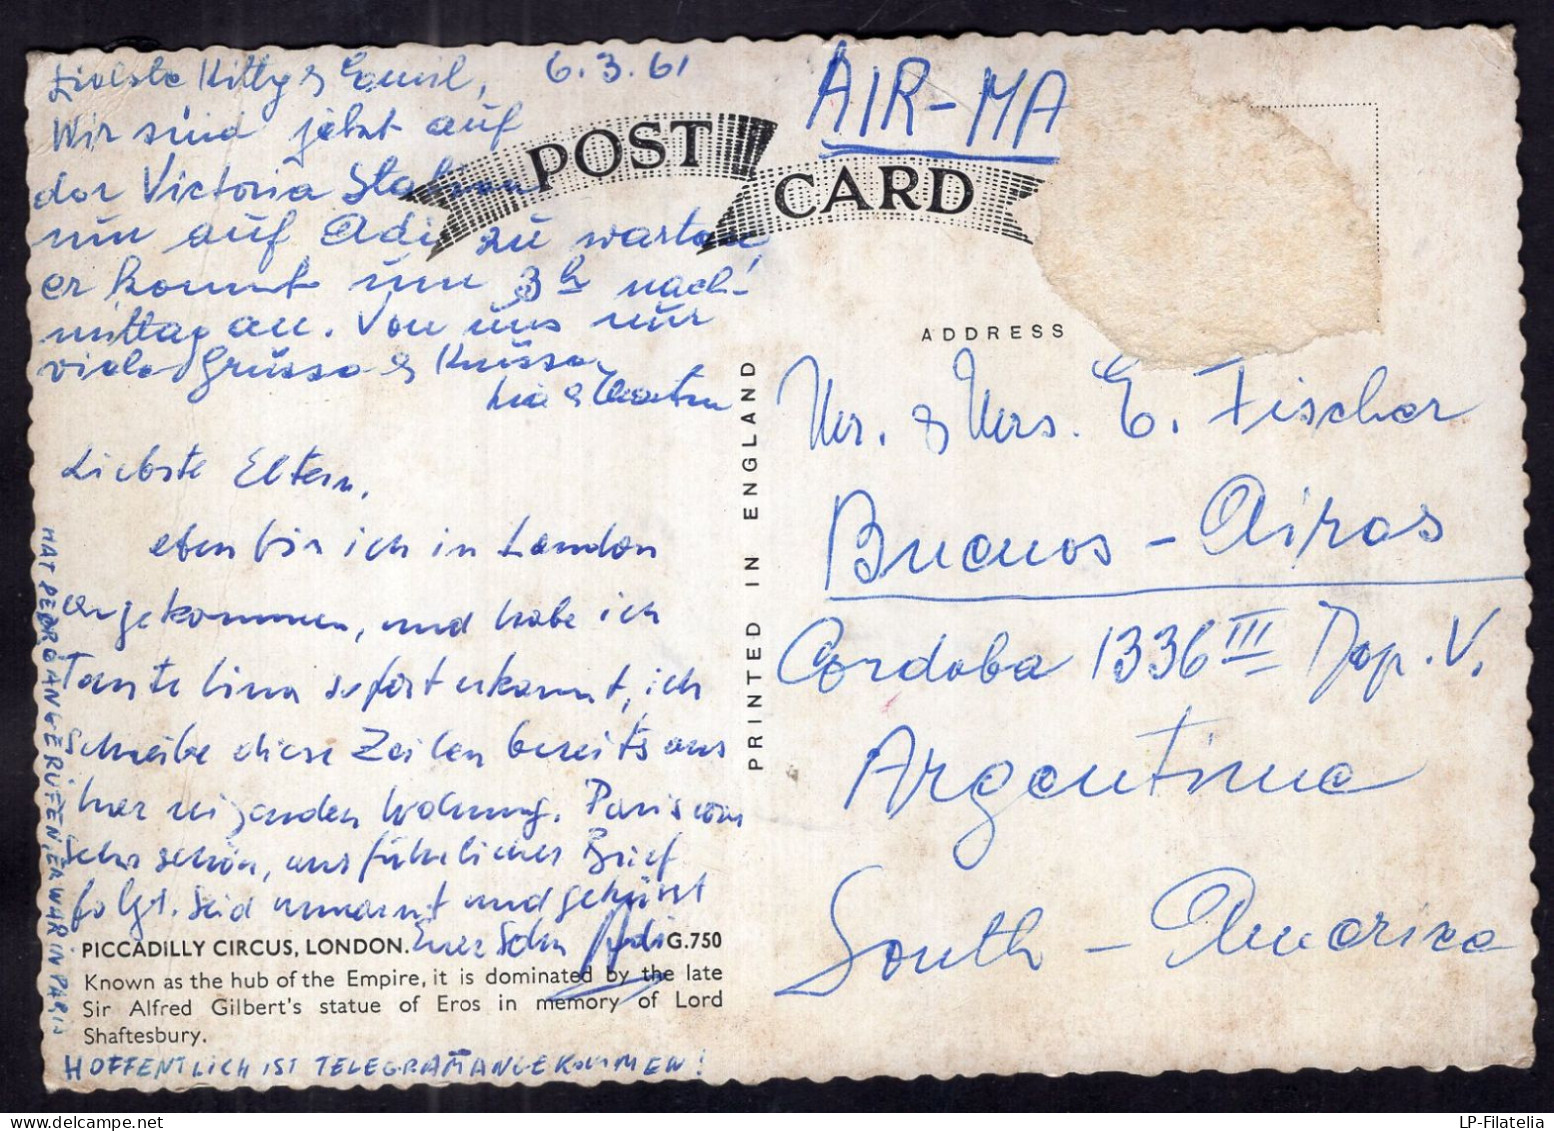 Liebste Kitty & Emil, 6.3.61
Wir sind jetzt auf
der Victoria Station
um auf Adi zu warten,
er kommt um 3h nach-
mittag an. Von uns nur
viele Grüsse & Küsse
Liebste Eltern,
eben bin ich in London
angekommen, und habe ich
Tante Lina sofort erkannt, ich
schreibe diese Zeilen bereits aus
Wohnung. Paris war
sehr schön, ausführlicher Brief
folgt. Seid umarmt und geküsst
Euer Sohn Adi
HAT PEDRO ANGERUFEN, ER WAR IN PARIS
HOFFENTLICH IST TELEGRAM ANGEKOMMEN!
PICCADILLY CIRCUS, LONDON. G.750
Known as the hub of the Empire, it is dominated by the late
Sir Alfred Gilbert's statue of Eros in memory of Lord
Shaftesbury.
PRINTED IN ENGLAND
POST
CARD
AIR-MA
ADDRESS
Mr. & Mrs. E. Fischer
Buenos-Aires
Cordoba 1336 III Dep. V.
Argentine
South-America
LP-Filatelia